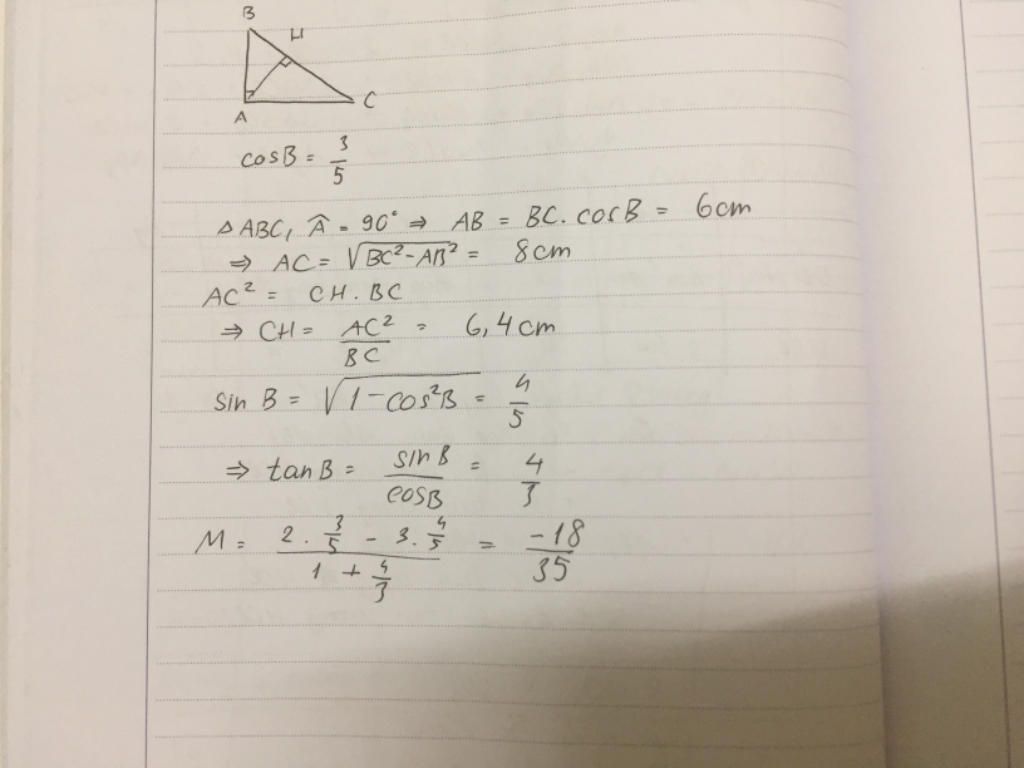 B
H
A
C
cosB = 3/5
△ABC, Â = 90° ⇒ AB = BC. cosB = 6cm
⇒ AC = √(BC²-AB²) = 8cm
AC² = CH. BC
⇒ CH = AC²/BC = 6,4cm
sin B = √(1-cos²B) = 4/5
⇒ tanB = sinB/cosB = 4/3
M = (2. 3/5 - 3. 4/5)/(1 + 4/3) = -18/35